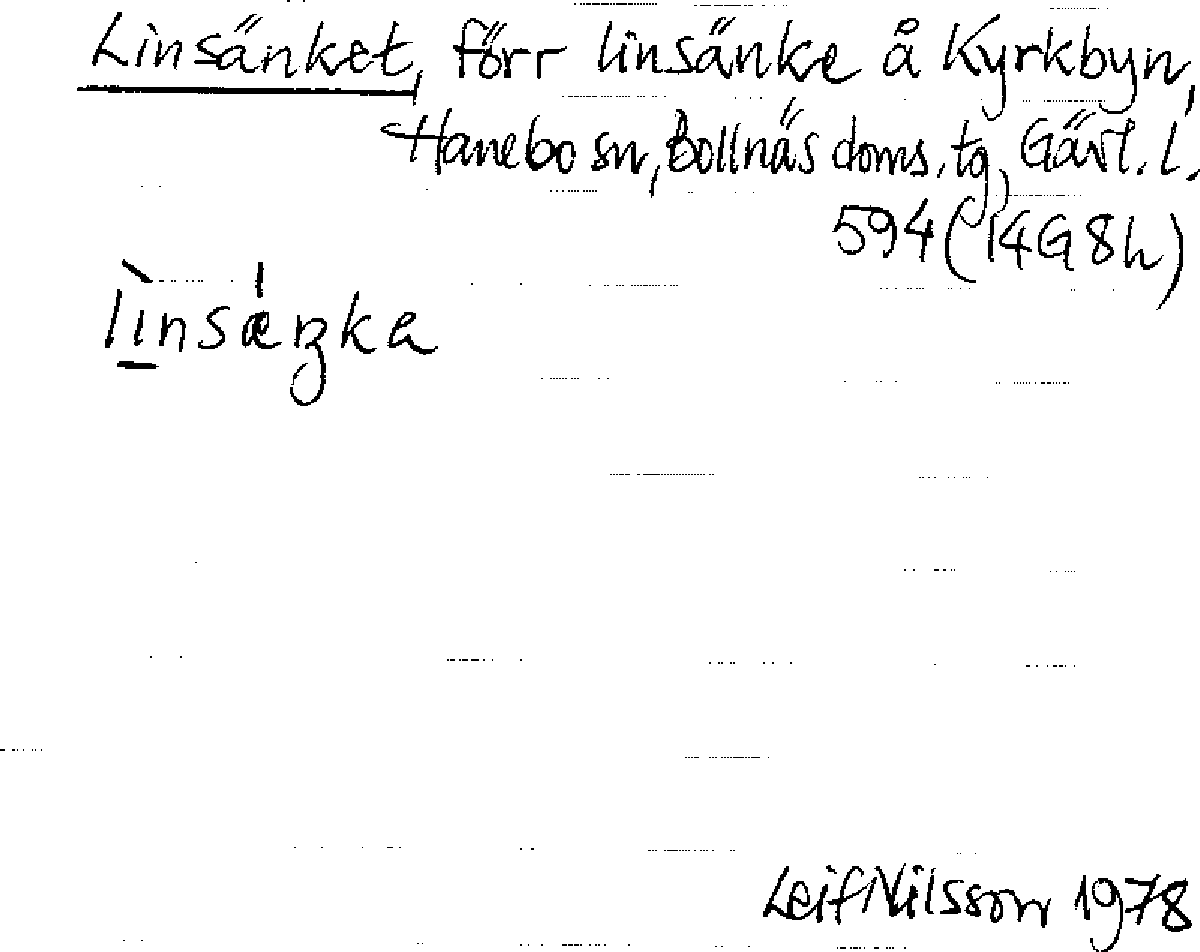 Linsänket, förr linsänke å Kyrkbyn,
Hanebo sn, Bollnäs doms. tg, Gävl. l.
594 (14G 8h)
lìnsǽŋka
Leif Nilsson 1978